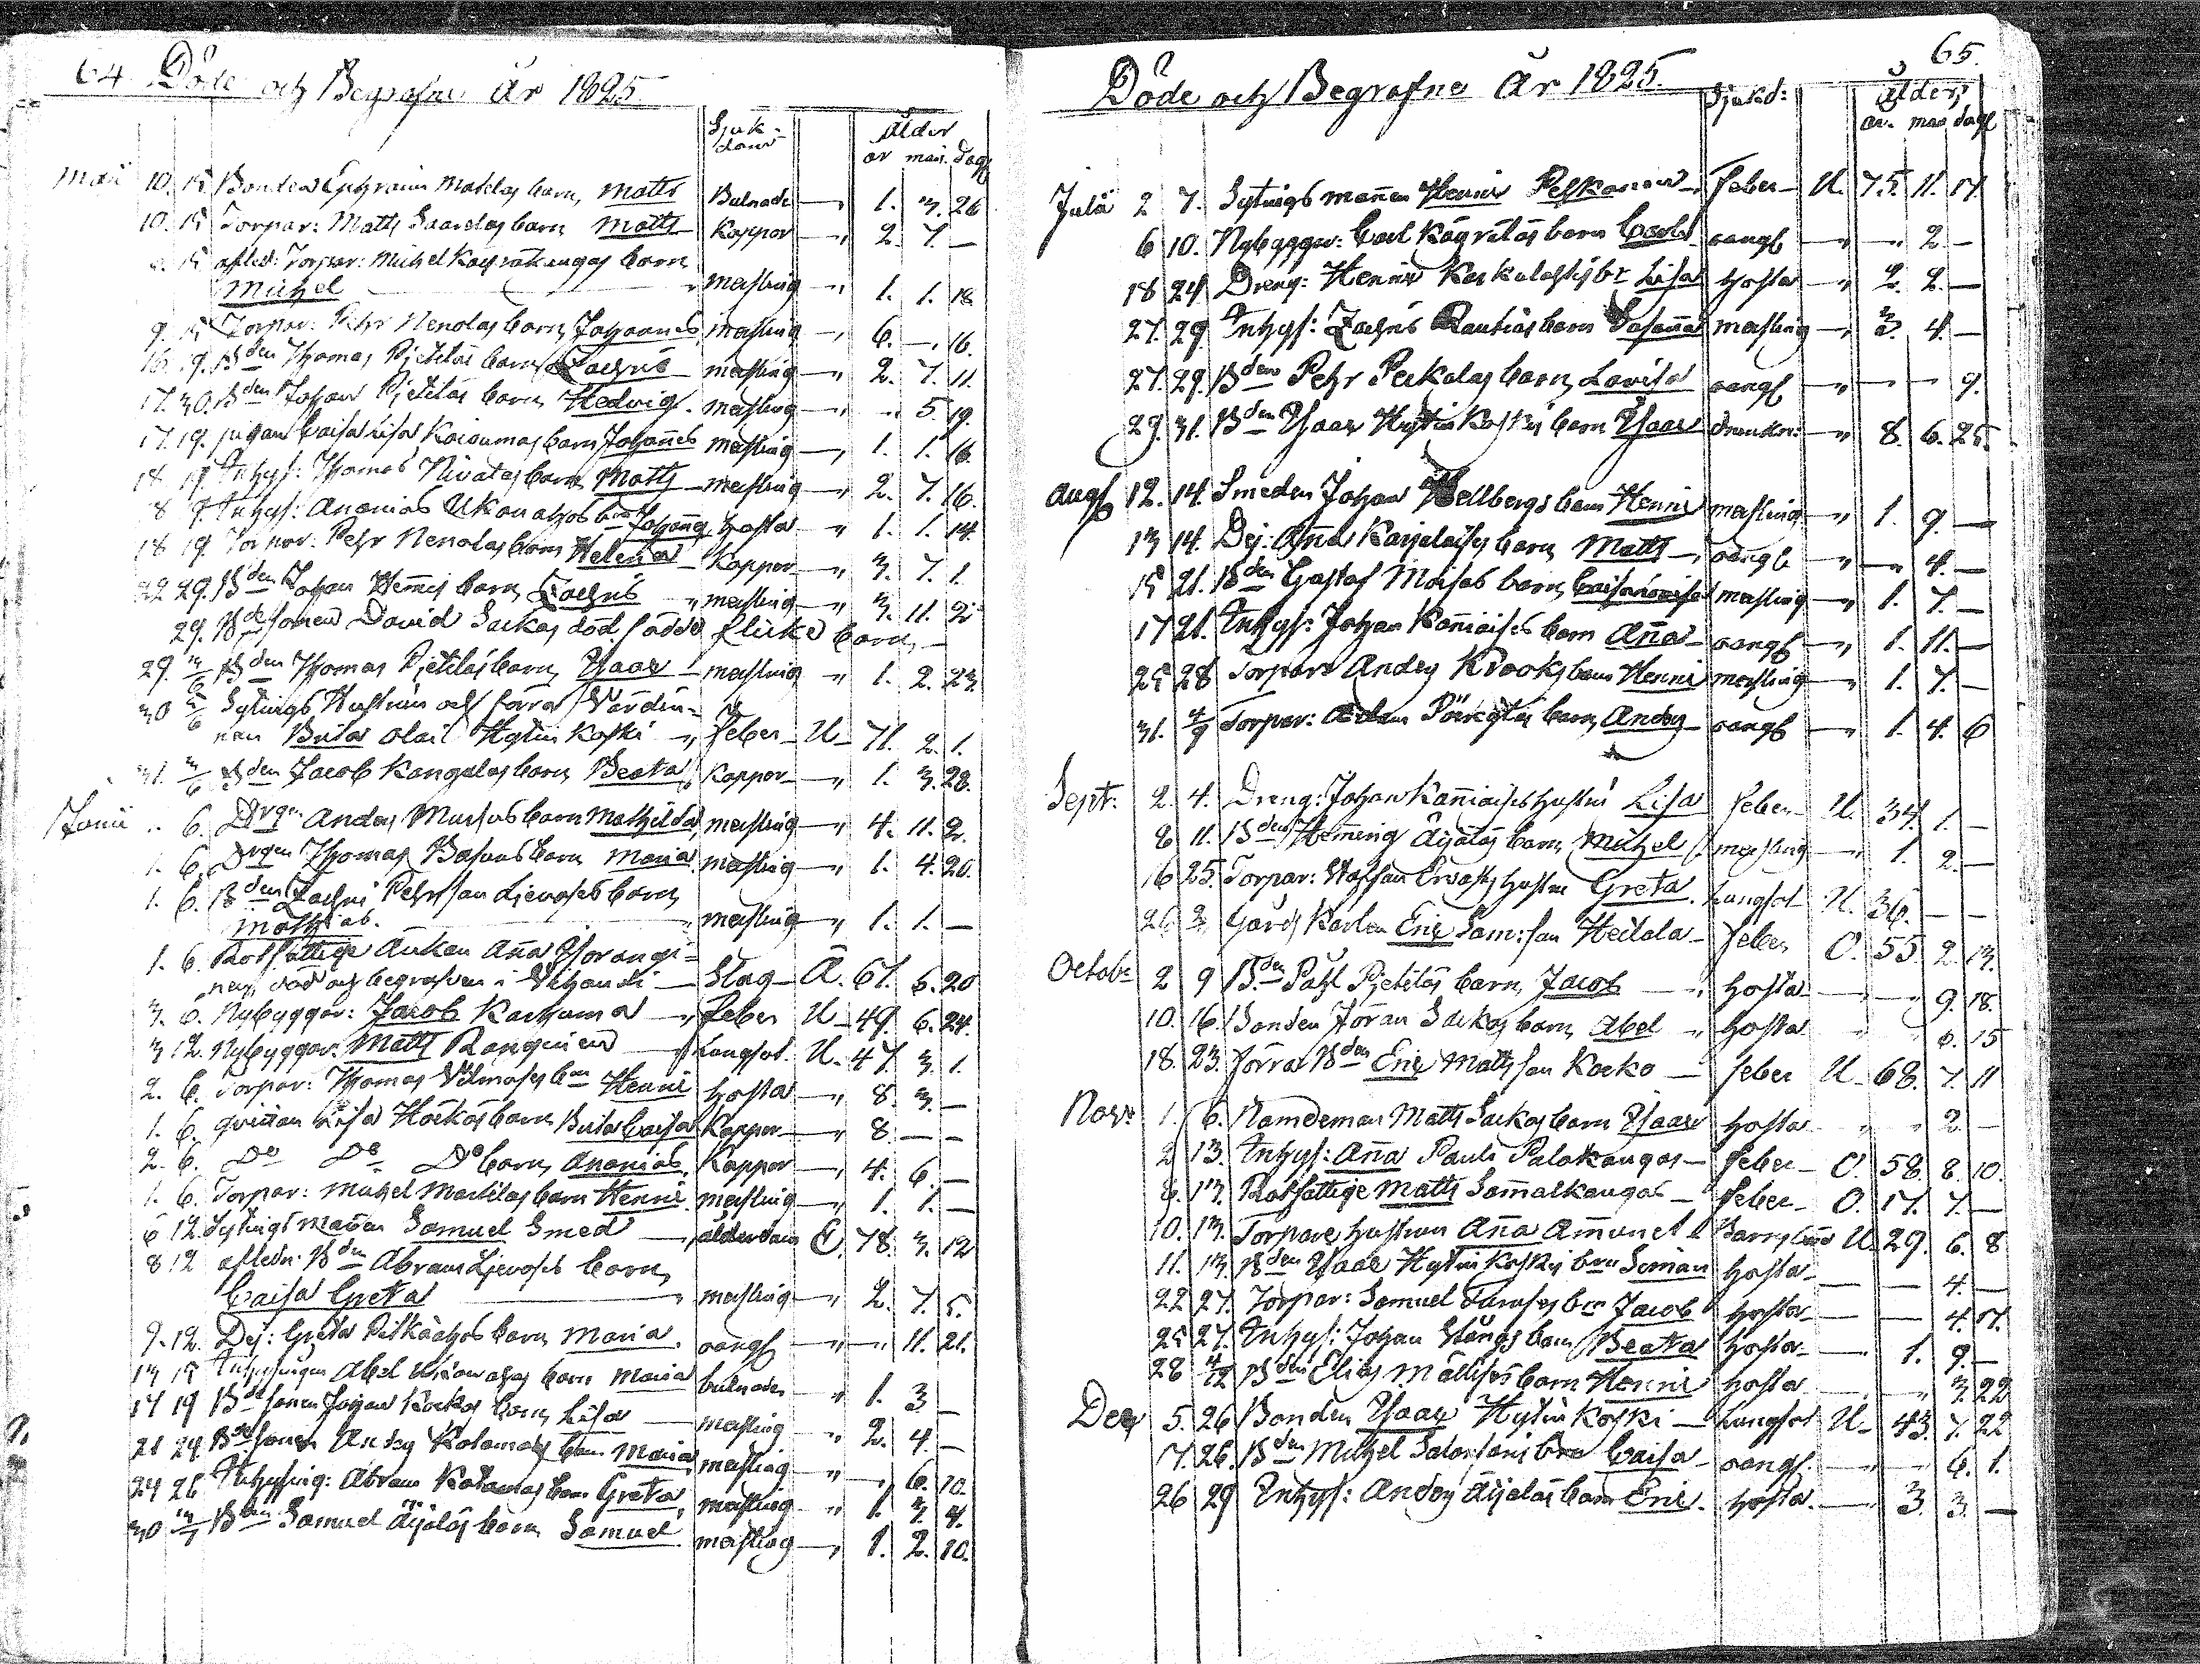 64 Döde och Begrafne År 1825.
Sjuk-
dom
ålder
år mån. dag
Maii 10. 15 Bonden Ephraim Mattlas barn, Matts Bulnade — " 1. 3. 26
10. 15 Torpar: Matts Saarelas barn Matts Koppor — " 2. 7. —
15 afled: Torpar: Michel barn
Michel — " mesling — " 1. 1. 18
9. 15 Torpar: Pehr Nenolas barn, Johannes mesling — " 6. — 16.
16. 19. Bden Thomas Pjetiläs barn Zachris mesling — " 2. 7. 11.
17. 30. Bden Johan Pjetiläs barn Hedvig mesling — " — 5. 19.
17. 19. pigan Caisa Lisa barn Johannes mesling — " 1. 1. 16.
18 19 Inhys: Thomas barn Matts mesling — " 2. 7. 16.
8 9. Inhys: Ananias Ukonahos barn Johannes hosta — " 1. 1. 14
18 19. Torpar: Pehr Nenolas barn Helena Koppor — " 3. 7. 1.
22 29. Bden Johan barn Zachris " mesling — " 3. 11. 2
29. Bdesonen David Sarkas död födde flicke barn —
29. 3/6 Bden Thomas Pjetiläs barn, Isaac mesling " 1. 2. 23.
30 5/6 Sytnings Hustrun och förra Värdin=
nan Brita Olai Hytinkoski — " feber U 71. 2. 1.
31. 3/6 Bden Jacob Kangalas barn Beata Koppor " 1. 3. 28.
Junii " 6. Drgn Anders barn Mathilda mesling — " 4. 11. 2.
1. 6. Drgen Thomas barn Maria mesling — " 1. 4. 20.
1. 6. Bden Zachri Pehrsson barn
Mathias. mesling — " 1. 1. —
1. 6. Rotfattige Änkan Anna
nen, död och begrafven i Vihanti — Slag Ä. 67. 5. 20
3. 6. Nybyggar: Jacob Karhuma " feber U 49. 6. 24.
3 12. Nybyggar: Matts — " Lungsot. U. 47. 3. 1.
2. 6. Torpar: Thomas barn Henric hosta — " 8. 3. —
1. 6. qvinnan Lisa barn Brita Caisa Koppor " 8. — —
2. 6. Do Do Do barn, Ananias. Koppor — " 4. 6. —
1. 6. Torpar: Michel Martilas barn Henric mesling — " 1. 1. —
6 12. Sytnings mannen Samuel Smed — " ålderdom E. 78. 3. 12
8 12 afledn: Bden Abram barn,
Caisa Greta — " mesling — " 2. 7. 5.
9. 12. Dej: Greta Pitkäahos barn Maria. oangf — " 11. 21.
13 15 Inhysingen Abel barn Maria bulnader " 1. 3 —
17 19 Bdesonen Johan barn Lisa — mesling " 2. 4. —
21 24. Bdesonen Anders barn Maria mesling " — 6. 10.
24 26 Inhysing: Abram barn Greta, mesling " 1. 3. 4.
30 3/7 Bden Samuel Äijäläs barn Samuel mesling — " 1. 2. 10.
65.
Döde och Begrafne År 1825.
Sjukd:
Ålder,
år. mån dag
Julii 2 7. Sytnings mannen Henric feber U. 75. 11. 17.
6 10. Nybyggar: Carl barn Carl oangf — " 2. —
18 24 Dreng: Henric br Lisa hosta — " 2. 2. —
27. 29. Inhys: Zachris Rautios barn Susanna mesling — " 3. 4. —
27. 29. Bden Pehr Peckalas barn, Lovisa oangf — " — 9.
29. 31. Bden Isaac Hytinkoskis barn Isaac drunkn: — " 8. 6. 25
Aug 12. 14. Smeden Johan Hellbergs barn Henric mesling — " 1. 9. —
13 14. Dej: Anna barn, Matts — oangf — " 4. —
15 21. Bden Gustaf barn Caisa Lovisa mesling — " 1. 7. —
17 21. Inhys: Johan barn Anna — oangf — " 1. 11. —
25 28 Torpare Anders Krooks barn Henric mesling — " 1. 7. —
31. 4/9 Torpar: Adam barn Anders oangf — " 1. 4. 6
Sept: 2. 4. Dreng: Johan hustru Lisa feber U. 34. 1. —
8 11. Bden Henning Äijäläs barn Michel mesling — " 1. 2. —
16 25. Torpar: Staffan Ervasts hustru Greta. Lungsot U. 36. — —
26 Gårds Karlen Eric Sam:son Heikkla feber O. 55. 2. 13.
Octobr 2 9 Bden Påhl Pjetiläs barn, Jacob — " hosta — 9. 18.
10. 16. Bonden Jöran Sarkas barn Abel " hosta 6. 15
18. 23. förra Bden Eric Mattsson — feber U 68. 7. 11
Novr 1. 6. Nämdeman Matts Sarkas barn Isaac hosta 2. —
2 13. Inhys: Anna Pauli Palokangas — feber — O. 58. 8. 10.
6. 13. Rotfattige Matts — feber — O. 17. 7. —
10. 13. Torpare hustrun Anna Barnsbörd U. 29. 6. 8
11. 13. Bden Isaac Hytinkoskis brn Simon hosta — 4. —
22 27. Torpar: Samuel brn Jacob hosta — 4. 17.
25 27. Inhys: Johan Stångs barn Beata hosta — 1. 9. —
28 4/12 Bden Elias barn Henric hosta — 3. 22
Decr 5. 26 Bonden Isaac Hytinkoski — Lungsot U. 43. 7. 22
17. 26. Bden Michel brn Caisa — oangf. — 6. 1.
26 29 Inhys: Anders Äijäläs barn Eric. hosta. — 3. 3. —